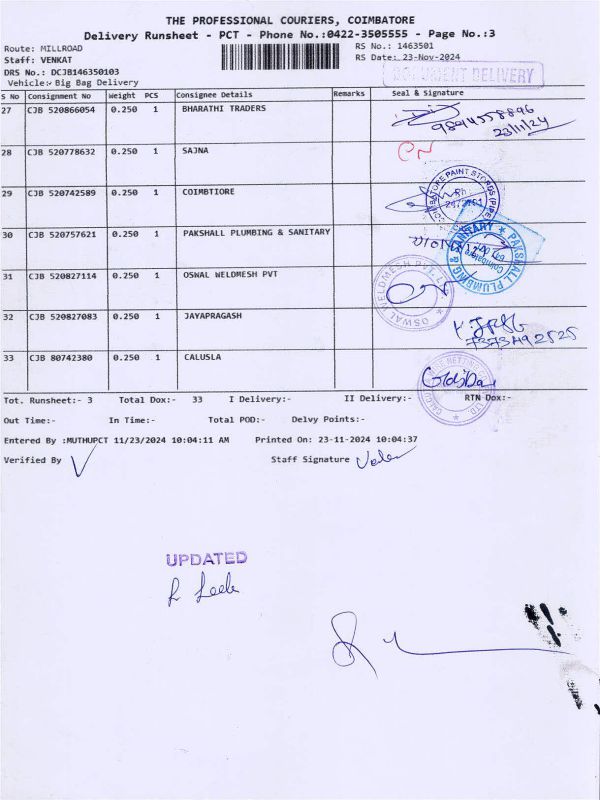 THE PROFESSIONAL COURIERS, COIMBATORE
Delivery Runsheet - PCT - Phone No.:0422-3505555 - Page No.:3
Route: MILLROAD
RS No.: 1463501
Staff: VENKAT
RS Date: 23-Nov-2024
DRS No.: DCJB146350103
DOCUMENT DELIVERY
Vehicle:- Big Bag Delivery
S No Consignment No Weight PCS Consignee Details Remarks Seal & Signature
27 CJB 520866054 0.250 1 BHARATHI TRADERS
9894558896
23/11/24
28 CJB 520778632 0.250 1 SAJNA
29 CJB 520742589 0.250 1 COIMBTIORE
30 CJB 520757621 0.250 1 PAKSHALL PLUMBING & SANITARY
PAKSHALL PLUMBING & SANITARY
Coimbatore
31 CJB 520827114 0.250 1 OSWAL WELDMESH PVT
OSWAL WELDMESH PVT. LTD
32 CJB 520827083 0.250 1 JAYAPRAGASH
7373492525
33 CJB 80742380 0.250 1 CALUSLA
Tot. Runsheet:- 3 Total Dox:- 33 I Delivery:- II Delivery:- RTN Dox:-
Out Time:- In Time:- Total POD:- Delvy Points:-
Entered By :MUTHUPCT 11/23/2024 10:04:11 AM Printed On: 23-11-2024 10:04:37
Verified By Staff Signature
UPDATED